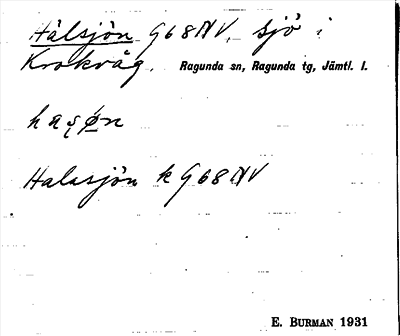 Halsjön G68NV, sjö i
Krokvåg. Ragunda sn, Ragunda tg, Jämtl. l.
Halasjön k G68NV
E. BURMAN 1931